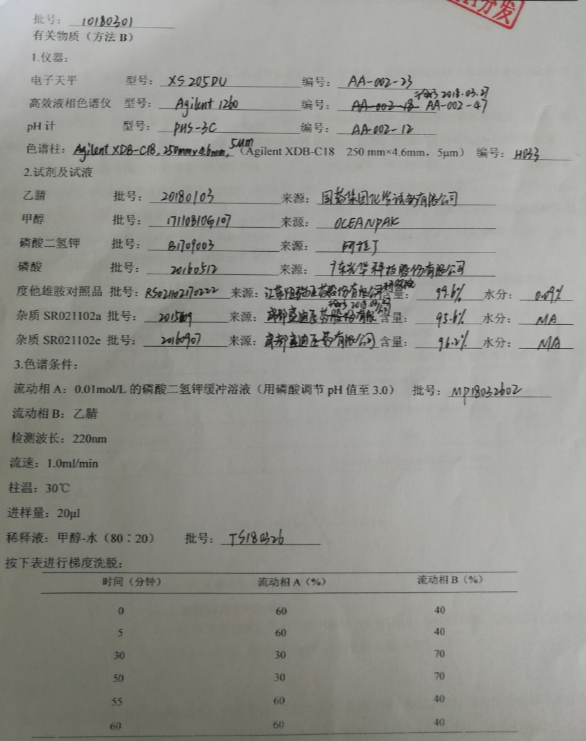 分发
批号: 10180301
有关物质（方法 B）
1.仪器:
电子天平 型号: XS 205DU 编号: AA-002-23
2018.03.27
高效液相色谱仪 型号: Agilent 1260 编号: AA-002-18 AA-002-47
pH 计 型号: PHS-3C 编号: AA-002-12
色谱柱: Agilent XDB-C18, 250mm×4.6mm, 5μm （Agilent XDB-C18 250 mm×4.6mm，5μm） 编号: H033
2.试剂及试液
乙腈 批号: 20180103 来源: 国药集团化学试剂有限公司
甲醇 批号: 17110810G107 来源: OCEANPAK
磷酸二氢钾 批号: B1709003 来源: 阿拉丁
磷酸 批号: 20160512 来源: 广东光华科技股份有限公司
度他雄胺对照品 批号: RS021102170222 来源: 股份有限公司 含量: 99.6% 水分: 0.09%
杂质 SR021102a 批号: 来源: 含量: 95.6% 水分: NA
杂质 SR021102c 批号: 20160907 来源: 有限公司 含量: 96.2% 水分: NA
3.色谱条件:
流动相 A：0.01mol/L 的磷酸二氢钾缓冲溶液（用磷酸调节 pH 值至 3.0） 批号: MP18032602
流动相 B：乙腈
检测波长：220nm
流速：1.0ml/min
柱温：30℃
进样量：20μl
稀释液：甲醇-水（80∶20） 批号: TS180326
按下表进行梯度洗脱:
时间（分钟） 流动相 A（%） 流动相 B（%）
0 60 40
5 60 40
30 30 70
50 30 70
55 60 40
60 60 40